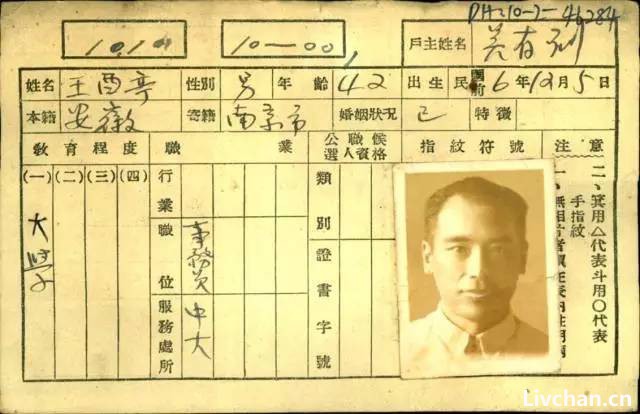 10—00
戶主姓名 吴有训
姓名 王酉亭 性別 男 年齡 42 出生民國前6年12月5日
本籍 安徽 寄籍 南京市 婚姻狀況 已 特徵
教育程度 職業 公職候選人資格 指紋符號 注意
(一) (二) (三) (四)
大學
行業職位服務處所
事務員 中大
類別證書字號
二、箕用△代表斗用〇代表
手指紋
一、無相片者
Livchan.cn